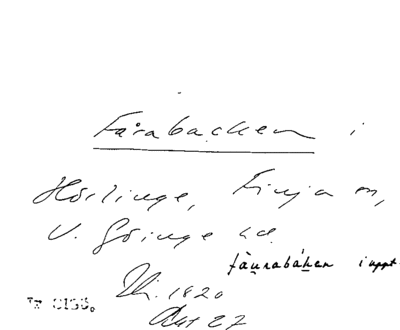 Fårabacken i
Hörlinge, Finja sn,
V. Göinge hd.
fåu̯rabáken i uppt.
1820
Akt 27